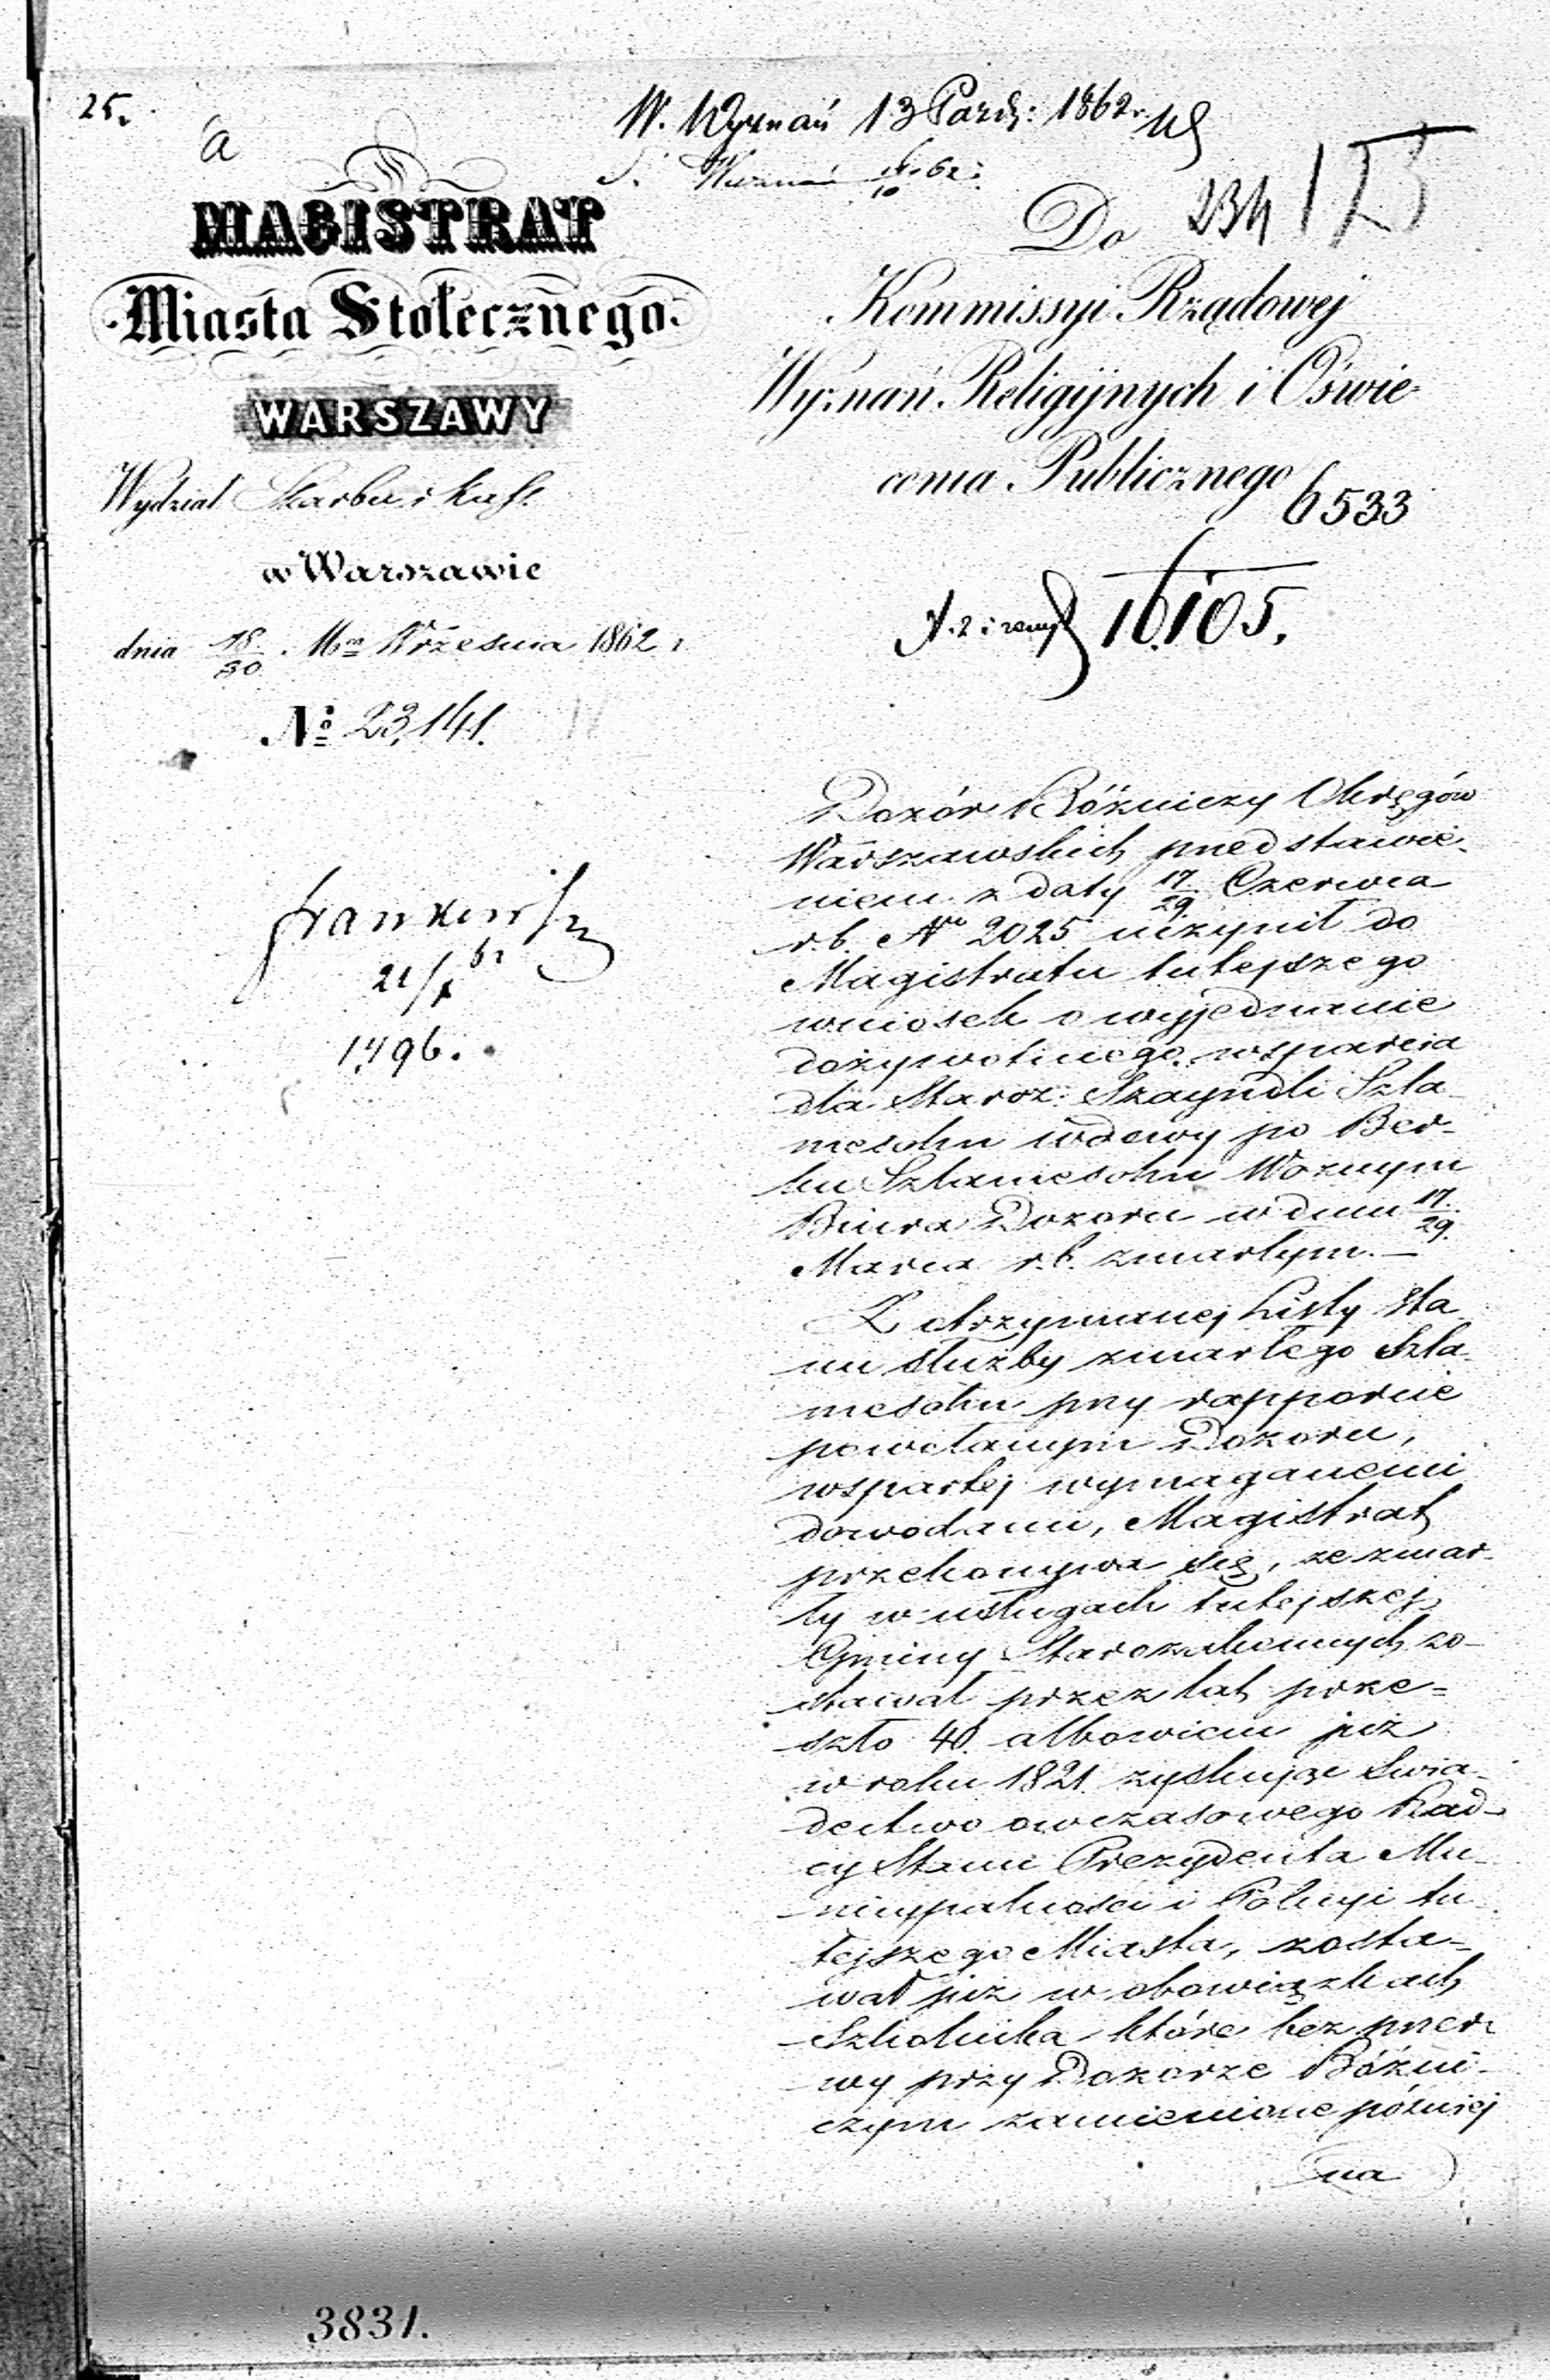 25.
a
W. Wyznań 13 Paźdz: 1862 r.
Do
234
MAGISTRAT
Miasta Stołecznego
WARSZAWY
Wydział Skarbu i Kass.
w Warszawie
dnia 18/30 Mca Września 1862 r.
No 23,141.
Kommissyi Rządowej
Wyznań Religijnych i Oświe-
cenia Publicznego
6533
16105.
21/X 62
1,496.
Dozór Bóżniczy Okręgów
Warszawskich przedstawie-
niem z daty 17/29 Czerwca
r.b. No 2025 uczynił do
Magistratu tutejszego
wniosek o wyjednanie
dożywotniego wsparcia
dla Staroz: Szayndli Szla-
mesohn wdowy po Ber-
ku Szlamesohn Woznym
Biura Dozoru w dniu 17/29
Marca r.b. zmarłym. —
Z otrzymanej Listy Sta
nu służby zmarłego Szla-
mesohn przy rapporcie
powołanym Dozoru,
wspartej wymaganemi
dowodami, Magistrat
przekonywa się, że zmar-
ły w usługach tutejszej
Gminy Starozakonnych zo-
stawał przez lat prze=
szło 40. albowiem już
w roku 1821 zyskując Świa-
dectwo owczasowego Rad-
cy Stanu Prezydenta Mu-
nicypalności i Policyi tu
tejszego Miasta, zosta-
wał już w obowiązkach
Szkolnika które bez przer-
wy przy Dozorze Bóżni-
czym zamienione później
na
3831.